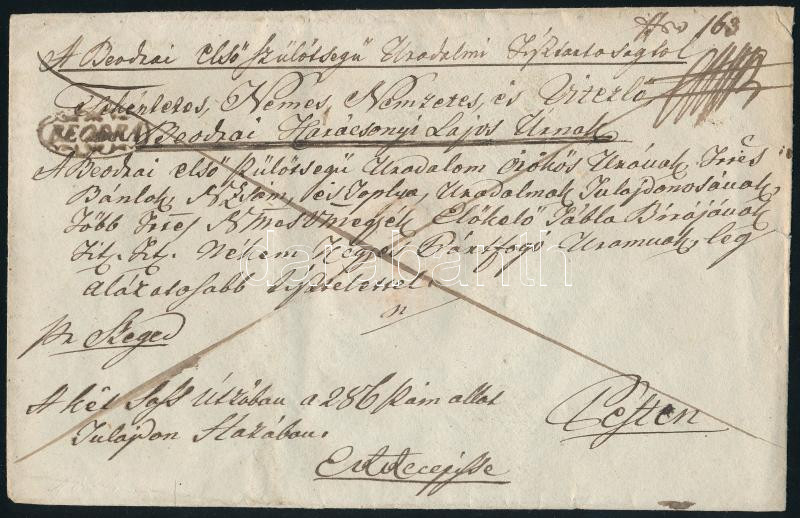 Nro 163
A Beodrai első szülötségű Uradalmi Tisztartoságtol
Tekéntetes, Nemes, Nemzetes, és Vitézlő
BEODRA
Beodrai Karácsonyi Lajos Úrnak
A Beodrai első szülötségű Uradalom örökös Urának, Ttes
Bánlak, és Toplya, Uradalmak Tulajdonosának,
Több Ttes Nmes Vmegyék Előkelő Tábla Birájának
Tit. Tit. Nékem Kegyes Pártfogó Uramnak, leg
alázatosabb tisztelettel
darabanth
pr Szeged
A két Sass Útszában a 286 szám allat
Tulajdon Házában.
Pesten
Ex Recepisse